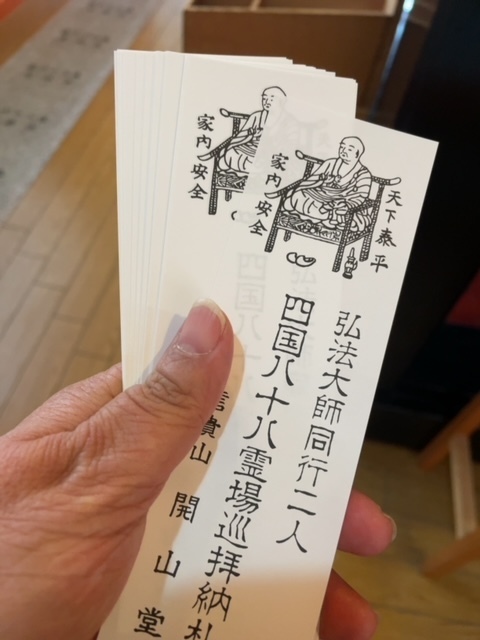 天下泰平
家内安全
弘法大師同行二人
四国八十八霊場巡拝納札
信貴山開山堂
家内安全